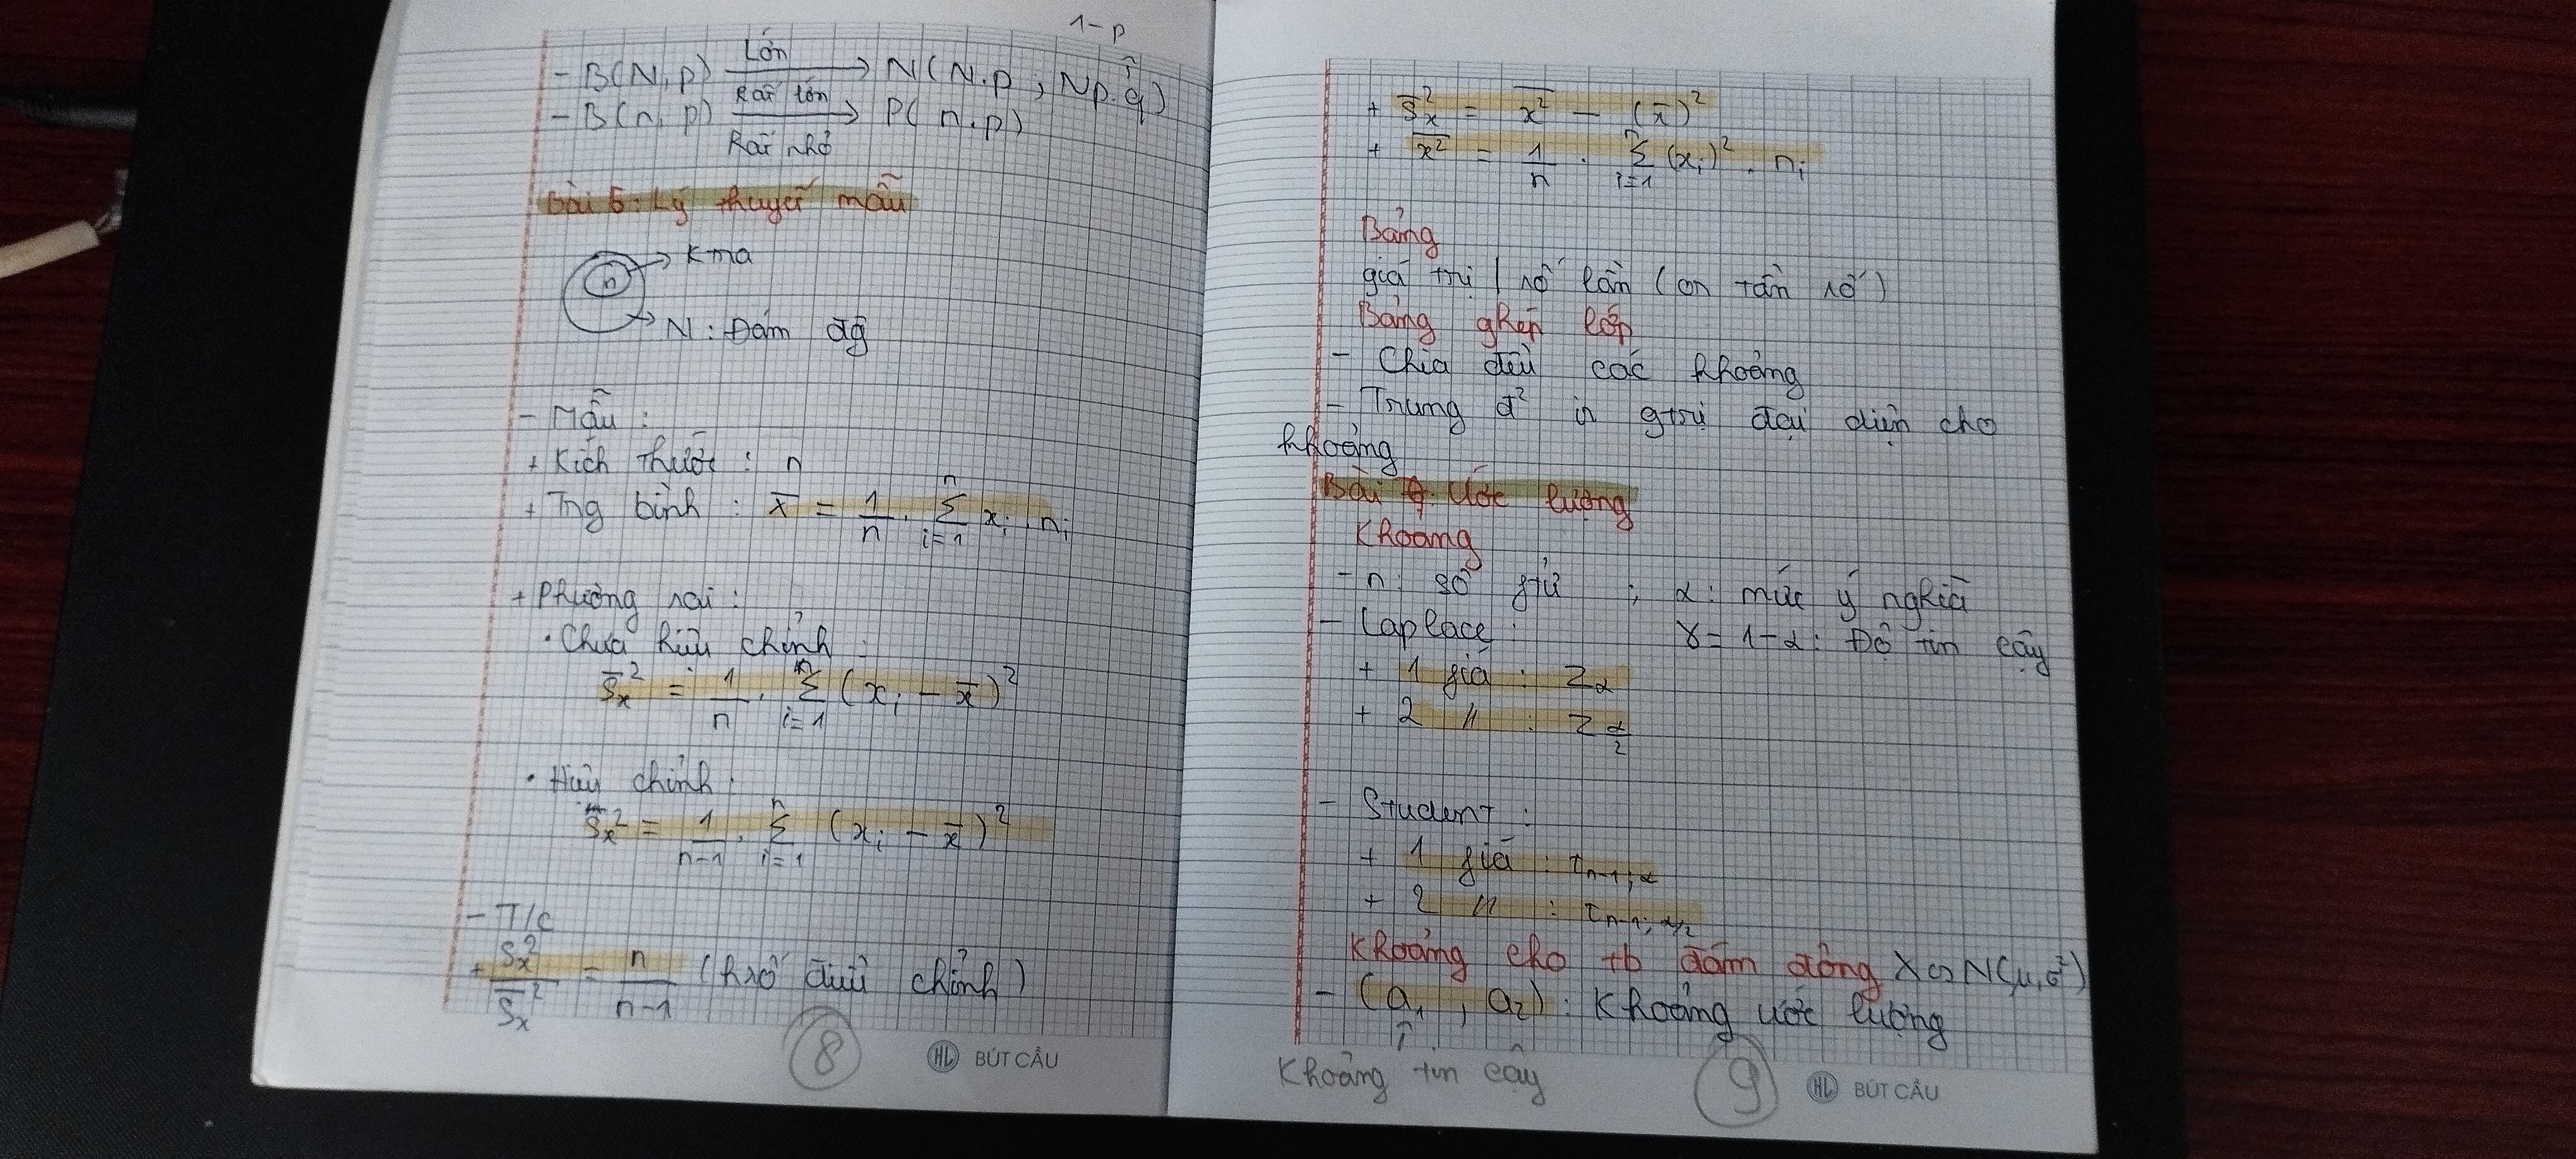 1-p
- B(N,p) —Lớn→ N(N.p ; Np.q)
Rất lớn
- B(n,p) → P(n.p)
Rất nhỏ
Bài 5: Lý thuyết mẫu
n → Kma
N: Đám đg
- Mẫu:
+ Kích thước: n
+ Trg bình: x̄ = 1/n . Σ(i=1→n) xᵢ . nᵢ
+ Phương sai:
• Chưa hiệu chỉnh:
S̄ₓ² = 1/n . Σ(i=1→n) (xᵢ - x̄)²
• Hiệu chỉnh:
Sₓ² = 1/(n-1) . Σ(i=1→n) (xᵢ - x̄)²
- T/c
+ Sₓ²/S̄ₓ² = n/(n-1) (hsố điều chỉnh)
8
HL BÚT CẦU
+ S̄ₓ² = x̄² (x² trung bình) - (x̄)²
+ x²‾ = 1/n . Σ(i=1→n) (xᵢ)² . nᵢ
Bảng
giá trị | số lần (on tần số)
Bảng ghép lớp
- Chia đều các khoảng
- Trung đ² is gtrị đại diện cho
khoảng
Ước lượng
Khoảng
- n: số gtử ; α: mức ý nghĩa
- Laplace: γ = 1-α: Độ tin cậy
+ 1 giá : Z_α
+ 2 // : Z_α/2
- Student:
+ 1 giá : t_n-1;α
+ 2 // : t_n-1;α/2
Khoảng cho tb đám đông X∽N(μ,σ²)
- (a₁, a₂): Khoảng ước lượng
↑
Khoảng tin cậy
9
HL BÚT CẦU